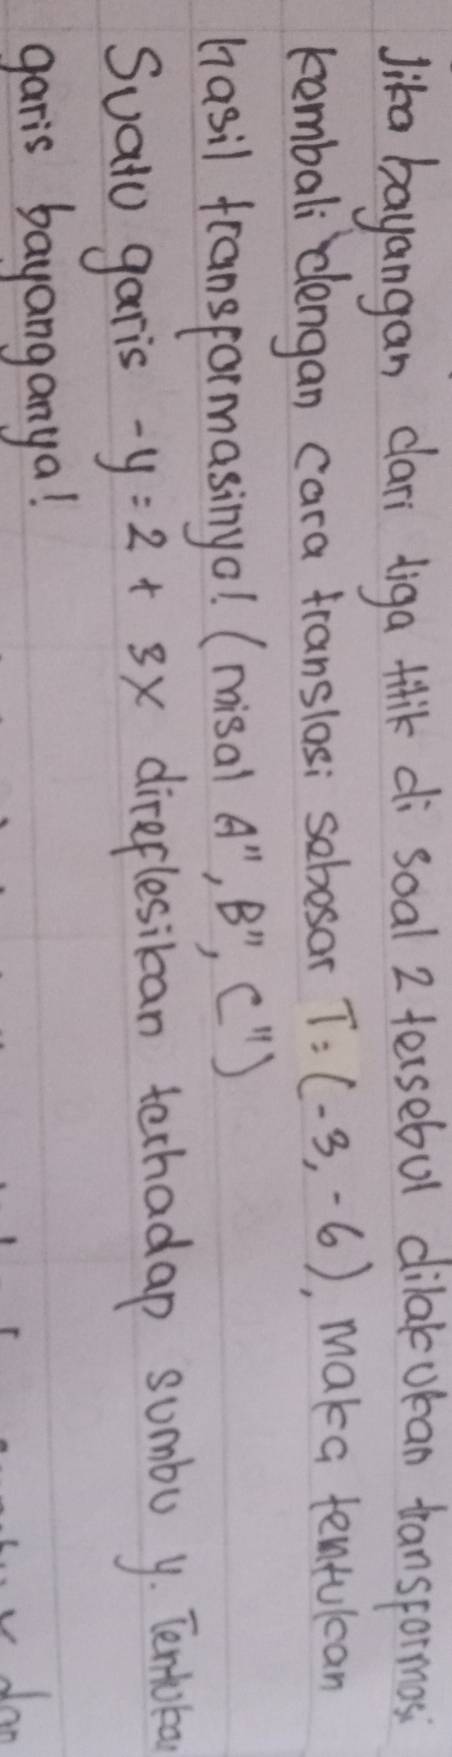 Jika bayangan dari tiga titik di soal 2 tersebut dilakukan transformasi
kembali dengan cara translasi sebesar T = (-3, -6), maka tentukan
hasil transformasinya! (misal A", B", C")
Suatu garis -y = 2 + 3x direflesikan terhadap sumbu y. Tentukan
garis bayanganya!